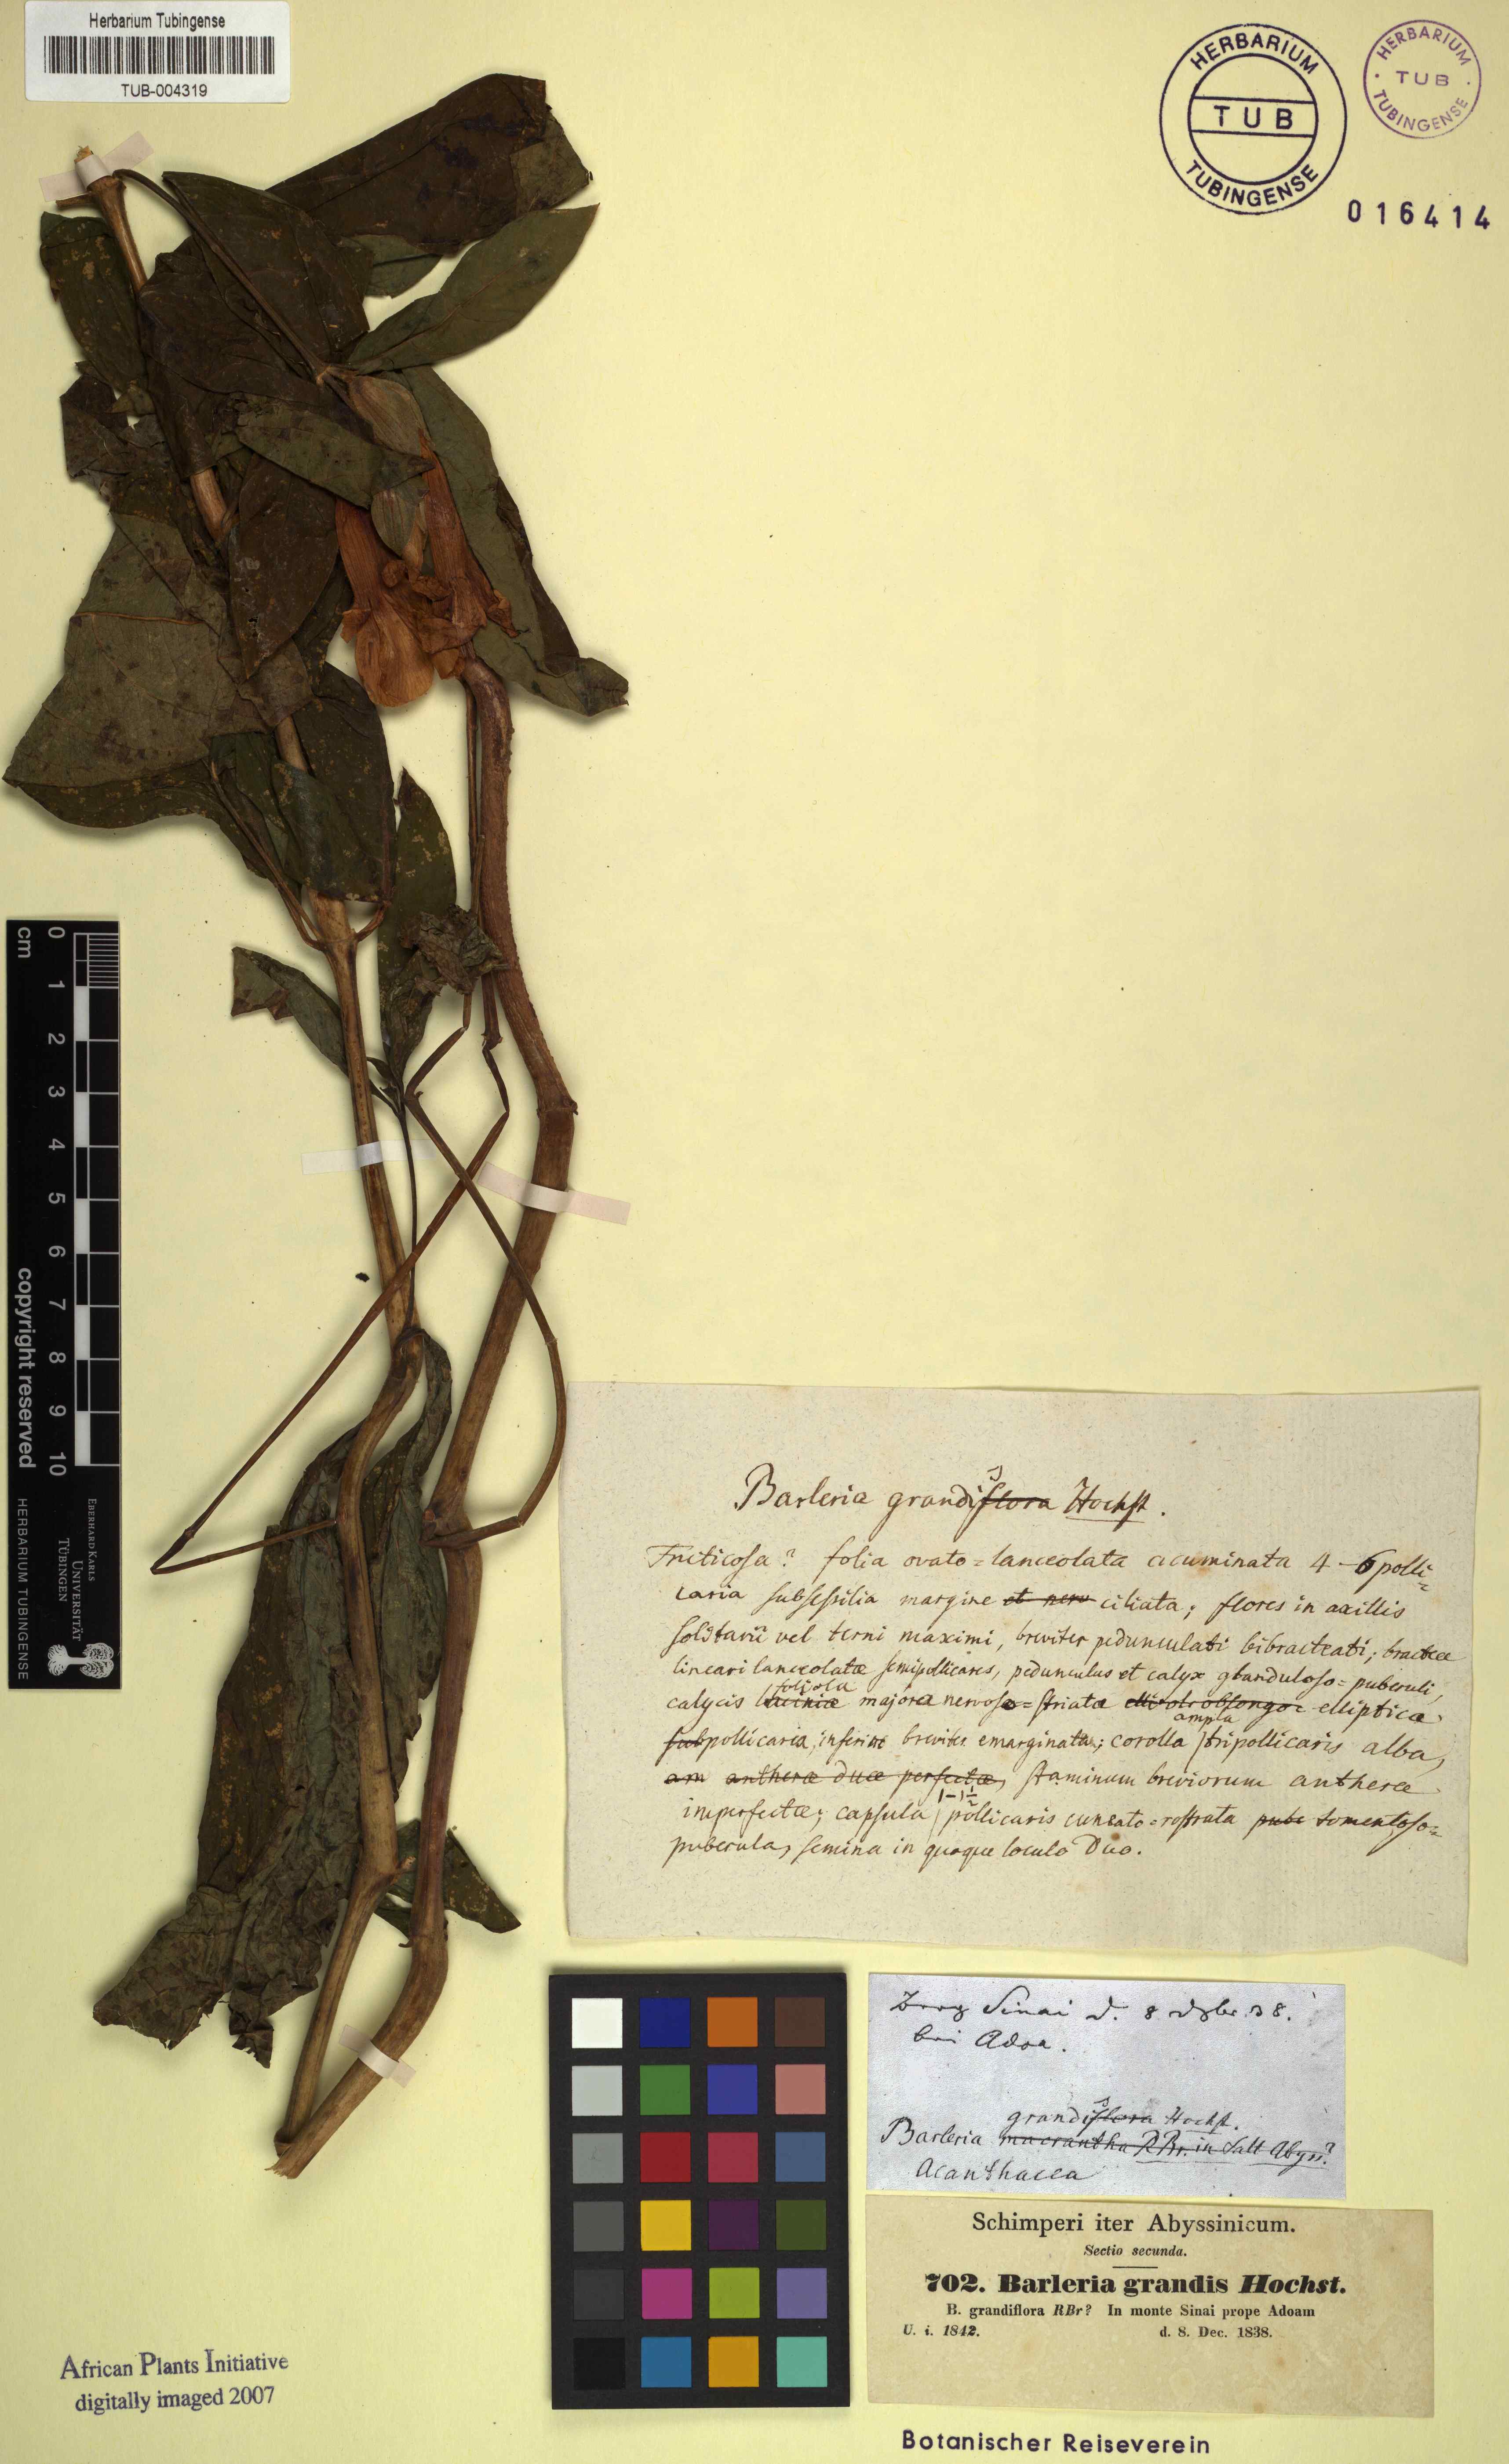 Herbarium Tubingense
TUB-004319
HERBARIUM
TUB
TUBINGENSE
HERBARIUM
TUB
TUBINGENSE
016414
cm
0 1 2 3 4 5 6 7 8 9 10
copyright reserved
HERBARIUM TUBINGENSE
EBERHARD KARLS
UNIVERSITÄT
TÜBINGEN
Barleria grandisflora Hochst.
Fruticosa? folia ovato=lanceolata acuminata 4-6 polli=
caria subsessilia margine et nerv ciliata; flores in axillis
solitarii vel terni maximi, breviter pedunculati bibracteati; bracteae
lineari lanceolatae semipollicares, pedunculus et calyx glanduloso=puberuli,
foliola
calycis laciniae majora nervoso=striata elliptica
ampla
subpollicaria, inferiore breviter emarginata; corolla tripollicaris alba,
am antherae duae perfectae, staminum breviorum antherae
1-1½
imperfectae; capsula pollicaris cuneato=rostrata pube tomentoso=
puberula, semina in quoque loculo duo.
Berg Sinai d. 8 Dzbr. 38.
bei Adoa.
grandisflora Hochst.
Barleria macrantha R Br. in Salt Abyss?
Acanthacea
Schimperi iter Abyssinicum.
Sectio secunda.
702. Barleria grandis Hochst.
B. grandiflora RBr? In monte Sinai prope Adoam
U. i. 1842. d. 8. Dec. 1838.
African Plants Initiative
digitally imaged 2007
Botanischer Reiseverein